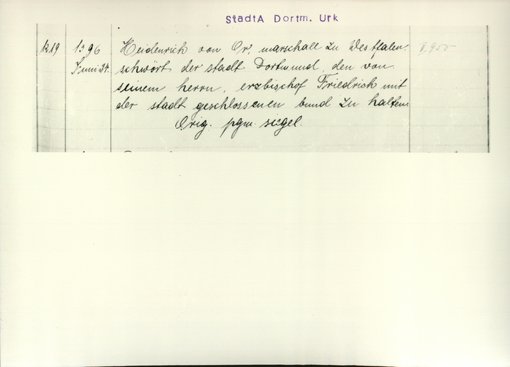 StadtA Dortm. Urk
1396 Heidenrich von Or, marschall zu Westfalen
Juni 24. schwört der stadt Dortmund, den von
seinem herrn, erzbischof Friedrich mit
der stadt geschlossenen bund zu halten
Orig. pgm. siegel.